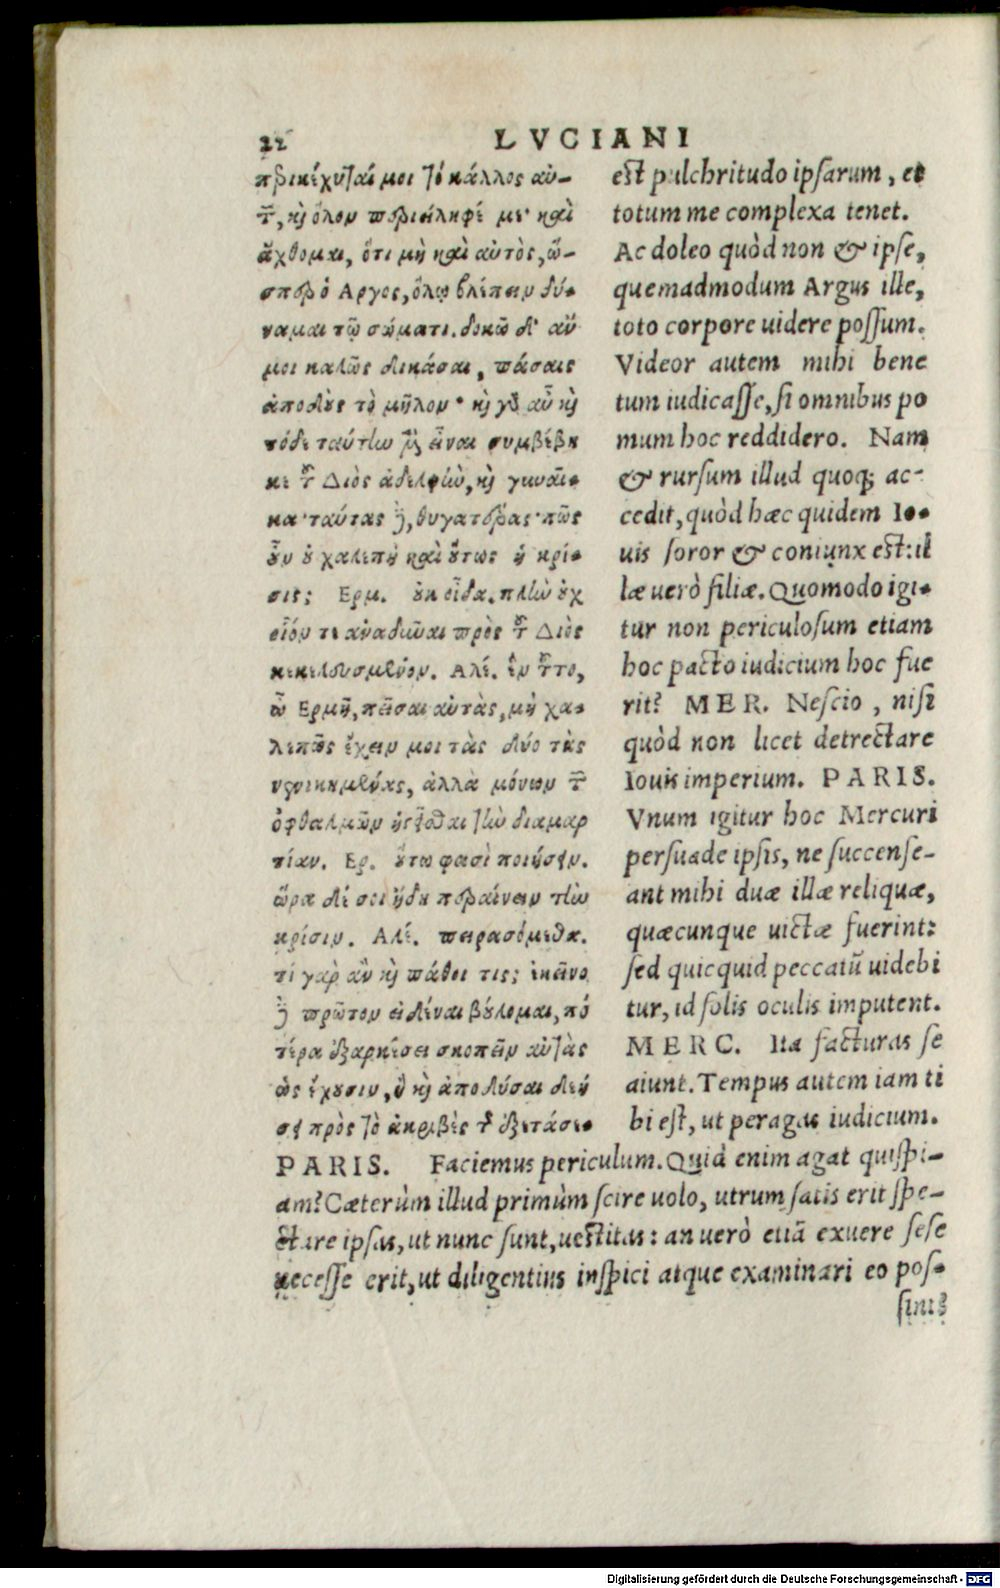 22 LVCIANI
περικέχυται μοι τὸ κάλλος αὐ-
τῶν, καὶ ὅλον περιείληφέ με· καὶ
ἄχθομαι, ὅτι μὴ καὶ αὐτὸς, ὥ-
σπερ ὁ Αργος, ὅλῳ βλέπειν δύ-
ναμαι τῷ σώματι. δοκῶ δ' ἄν
μοι καλῶς δικάσαι, πάσαις
ἀποδοὺς τὸ μῆλον· καὶ γὰρ αὖ καὶ
τόδε ταύτην μὲν εἶναι συμβέβη
κε τοῦ Διὸς ἀδελφὴν, καὶ γυναῖ-
κα· ταύτας δὲ, θυγατέρας· πῶς
οὖν οὐ χαλεπὴ καὶ οὕτως ἡ κρί-
σις; Ερμ. οὐκ οἶδα. πλὴν οὐχ
οἷόν τε ἀναδῦναι πρὸς τοῦ Διὸς
κεκελευσμένον. Αλέ. ἓν τοῦτο,
ὦ Ερμῆ, πεῖσαι αὐτὰς, μὴ χα-
λεπῶς ἔχειν μοι τὰς δύο τὰς
νενικημένας, ἀλλὰ μόνων τῶν
ὀφθαλμῶν ἡγεῖσθαι τὴν διαμαρ
τίαν. Ερ. οὕτω φασὶ ποιήσειν.
ὥρα δέ σοι ἤδη περαίνειν τὴν
κρίσιν. Αλέ. πειρασόμεθα.
τί γὰρ ἂν καὶ πάθοι τις; ἐκεῖνο
δὲ πρῶτον εἰδέναι βούλομαι, πό
τερα ἐξαρκέσει σκοπεῖν αὐτὰς
ὡς ἔχουσιν, ἢ καὶ ἀποδύσαι δεή
σει πρὸς τὸ ἀκριβὲς τῆς ἐξετάσε-
est pulchritudo ipsarum, et
totum me complexa tenet.
Ac doleo quòd non & ipse,
quemadmodum Argus ille,
toto corpore uidere possum.
Videor autem mihi bene
tum iudicasse, si omnibus po
mum hoc reddidero. Nam
& rursum illud quoq; ac-
cedit, quòd hæc quidem Io-
uis soror & coniunx est: il
læ uerò filiæ. Quomodo igi-
tur non periculosum etiam
hoc pacto iudicium hoc fue
rit? MER. Nescio, nisi
quòd non licet detrectare
Iouis imperium. PARIS.
Vnum igitur hoc Mercuri
persuade ipsis, ne succense-
ant mihi duæ illæ reliquæ,
quæcunque uictæ fuerint:
sed quicquid peccatū uidebi
tur, id solis oculis imputent.
MERC. Ita facturas se
aiunt. Tempus autem iam ti
bi est, ut peragas iudicium.
PARIS. Faciemus periculum. Quid enim agat quispi-
am? Cæterùm illud primùm scire uolo, utrum satis erit spe-
ctare ipsas, ut nunc sunt, uestitas: an uerò etiā exuere sese
necesse erit, ut diligentius inspici atque examinari eo pos-
sint?
Digitalisierung gefördert durch die Deutsche Forschungsgemeinschaft - DFG